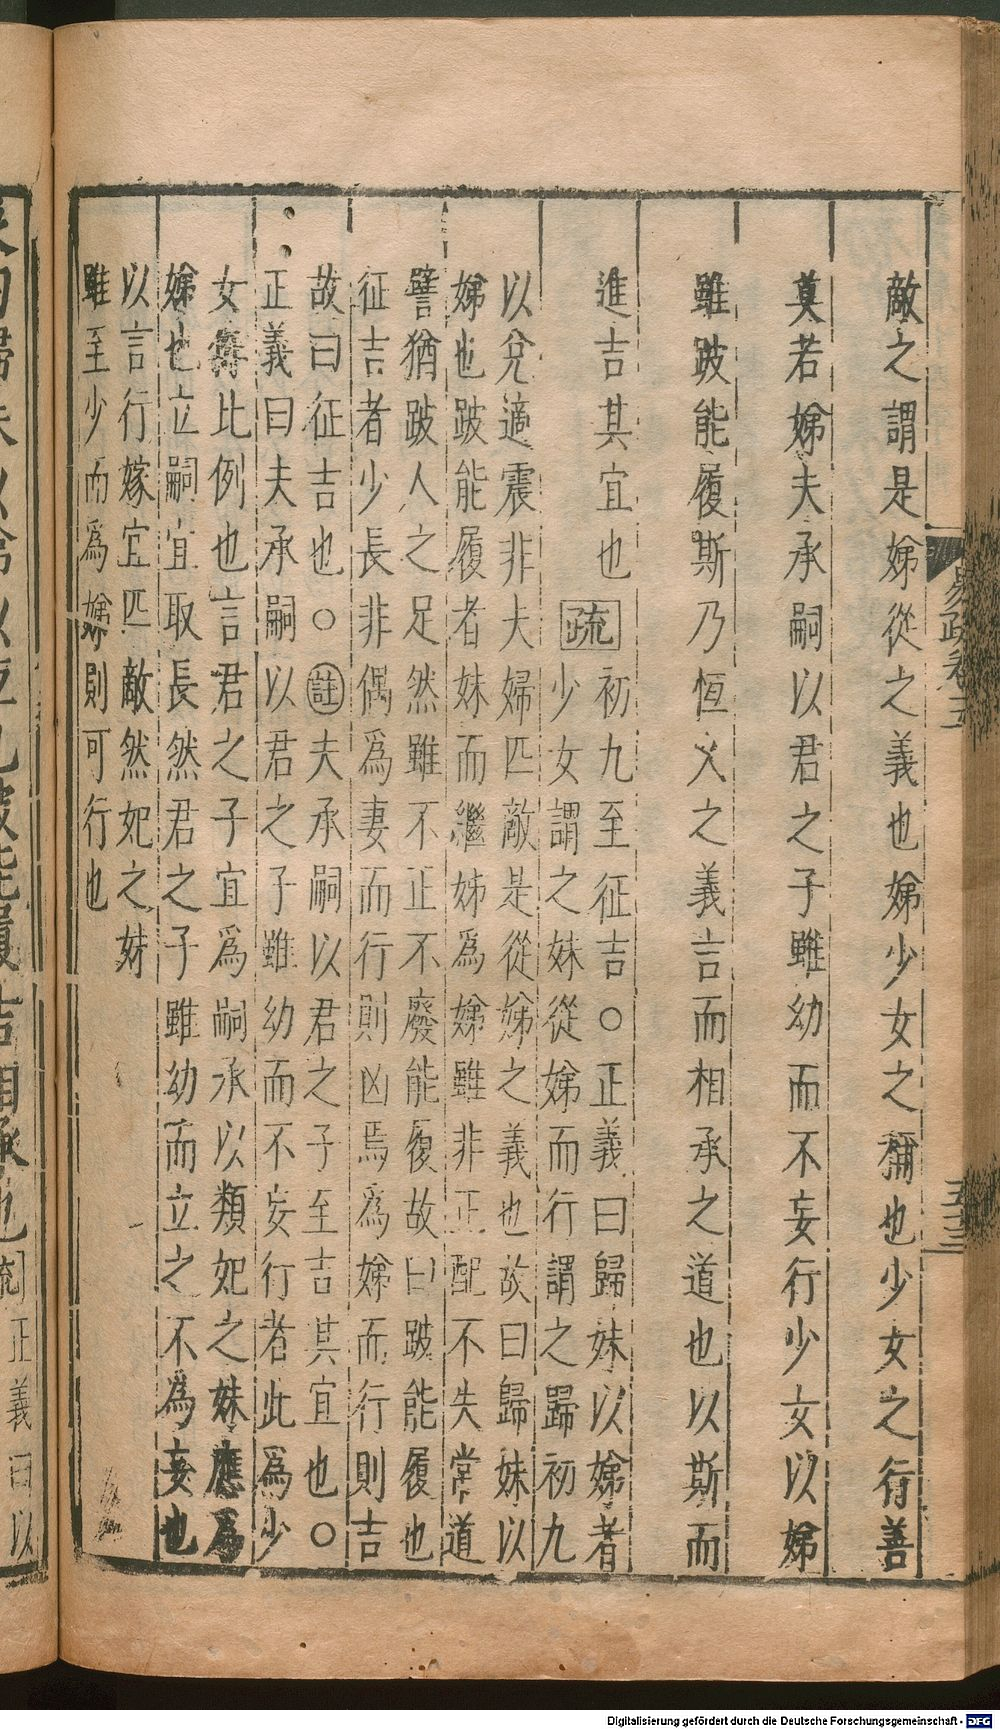 敵之謂是娣從之義也娣少女之稱也少女之行善
莫若娣夫承嗣以君之子雖幼而不妄行少女以娣
雖跛能履斯乃恒久之義言而相承之道也以斯而
進吉其宜也疏初九至征吉○正義曰歸妹以娣者
少女謂之妹從娣而行謂之歸初九
以兌適震非夫婦匹敵是從娣之義也故曰歸妹以
娣也跛能履者妹而繼姊為娣雖非正配不失常道
譬猶跛人之足然雖不正不廢能履故曰跛能履也
征吉者少長非偶為妻而行則凶焉為娣而行則吉
故曰征吉也○註夫承嗣以君之子至吉其宜也○
正義曰夫承嗣以君之子雖幼而不妄行者此為少
女作比例也言君之子宜為嗣承以類妃之妹應為
娣也立嗣宜取長然君之子雖幼而立之不為妄也
以言行嫁宜匹敵然妃之妹
雖至少而為娣則可行也
易疏卷五
五十三
正義曰以
Digitalisierung gefördert durch die Deutsche Forschungsgemeinschaft - DFG